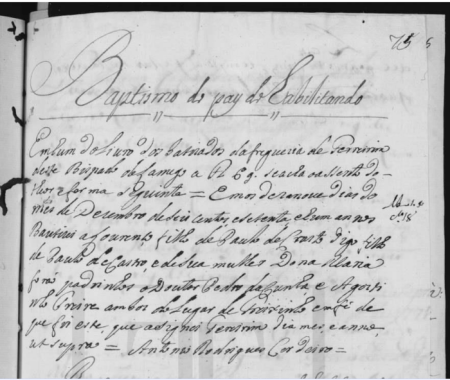 75
Baptismo do pay do Enbilitando
Em hum do Livro dos Batizados da freguezia de Ferreira
deste Bispado de Lamego a fl 69 se acha o assento do
theor e forma seguinte = Em os dezanove dias do
mes de Dezembro de seis centos e setenta, e hum annos
Bautizei a Lourenco filho de Paulo de Crasto digo filho
de Paulo de Castro, e de sua mulher Dona Maria
forão padrinhos o Doutor Pedro da Cunha e Agosti
nho Freire ambos do Lugar de em fé de
que fiz este, que asignei dia mes e anno
ut supra = Antonio Rodrigues Cordeiro =